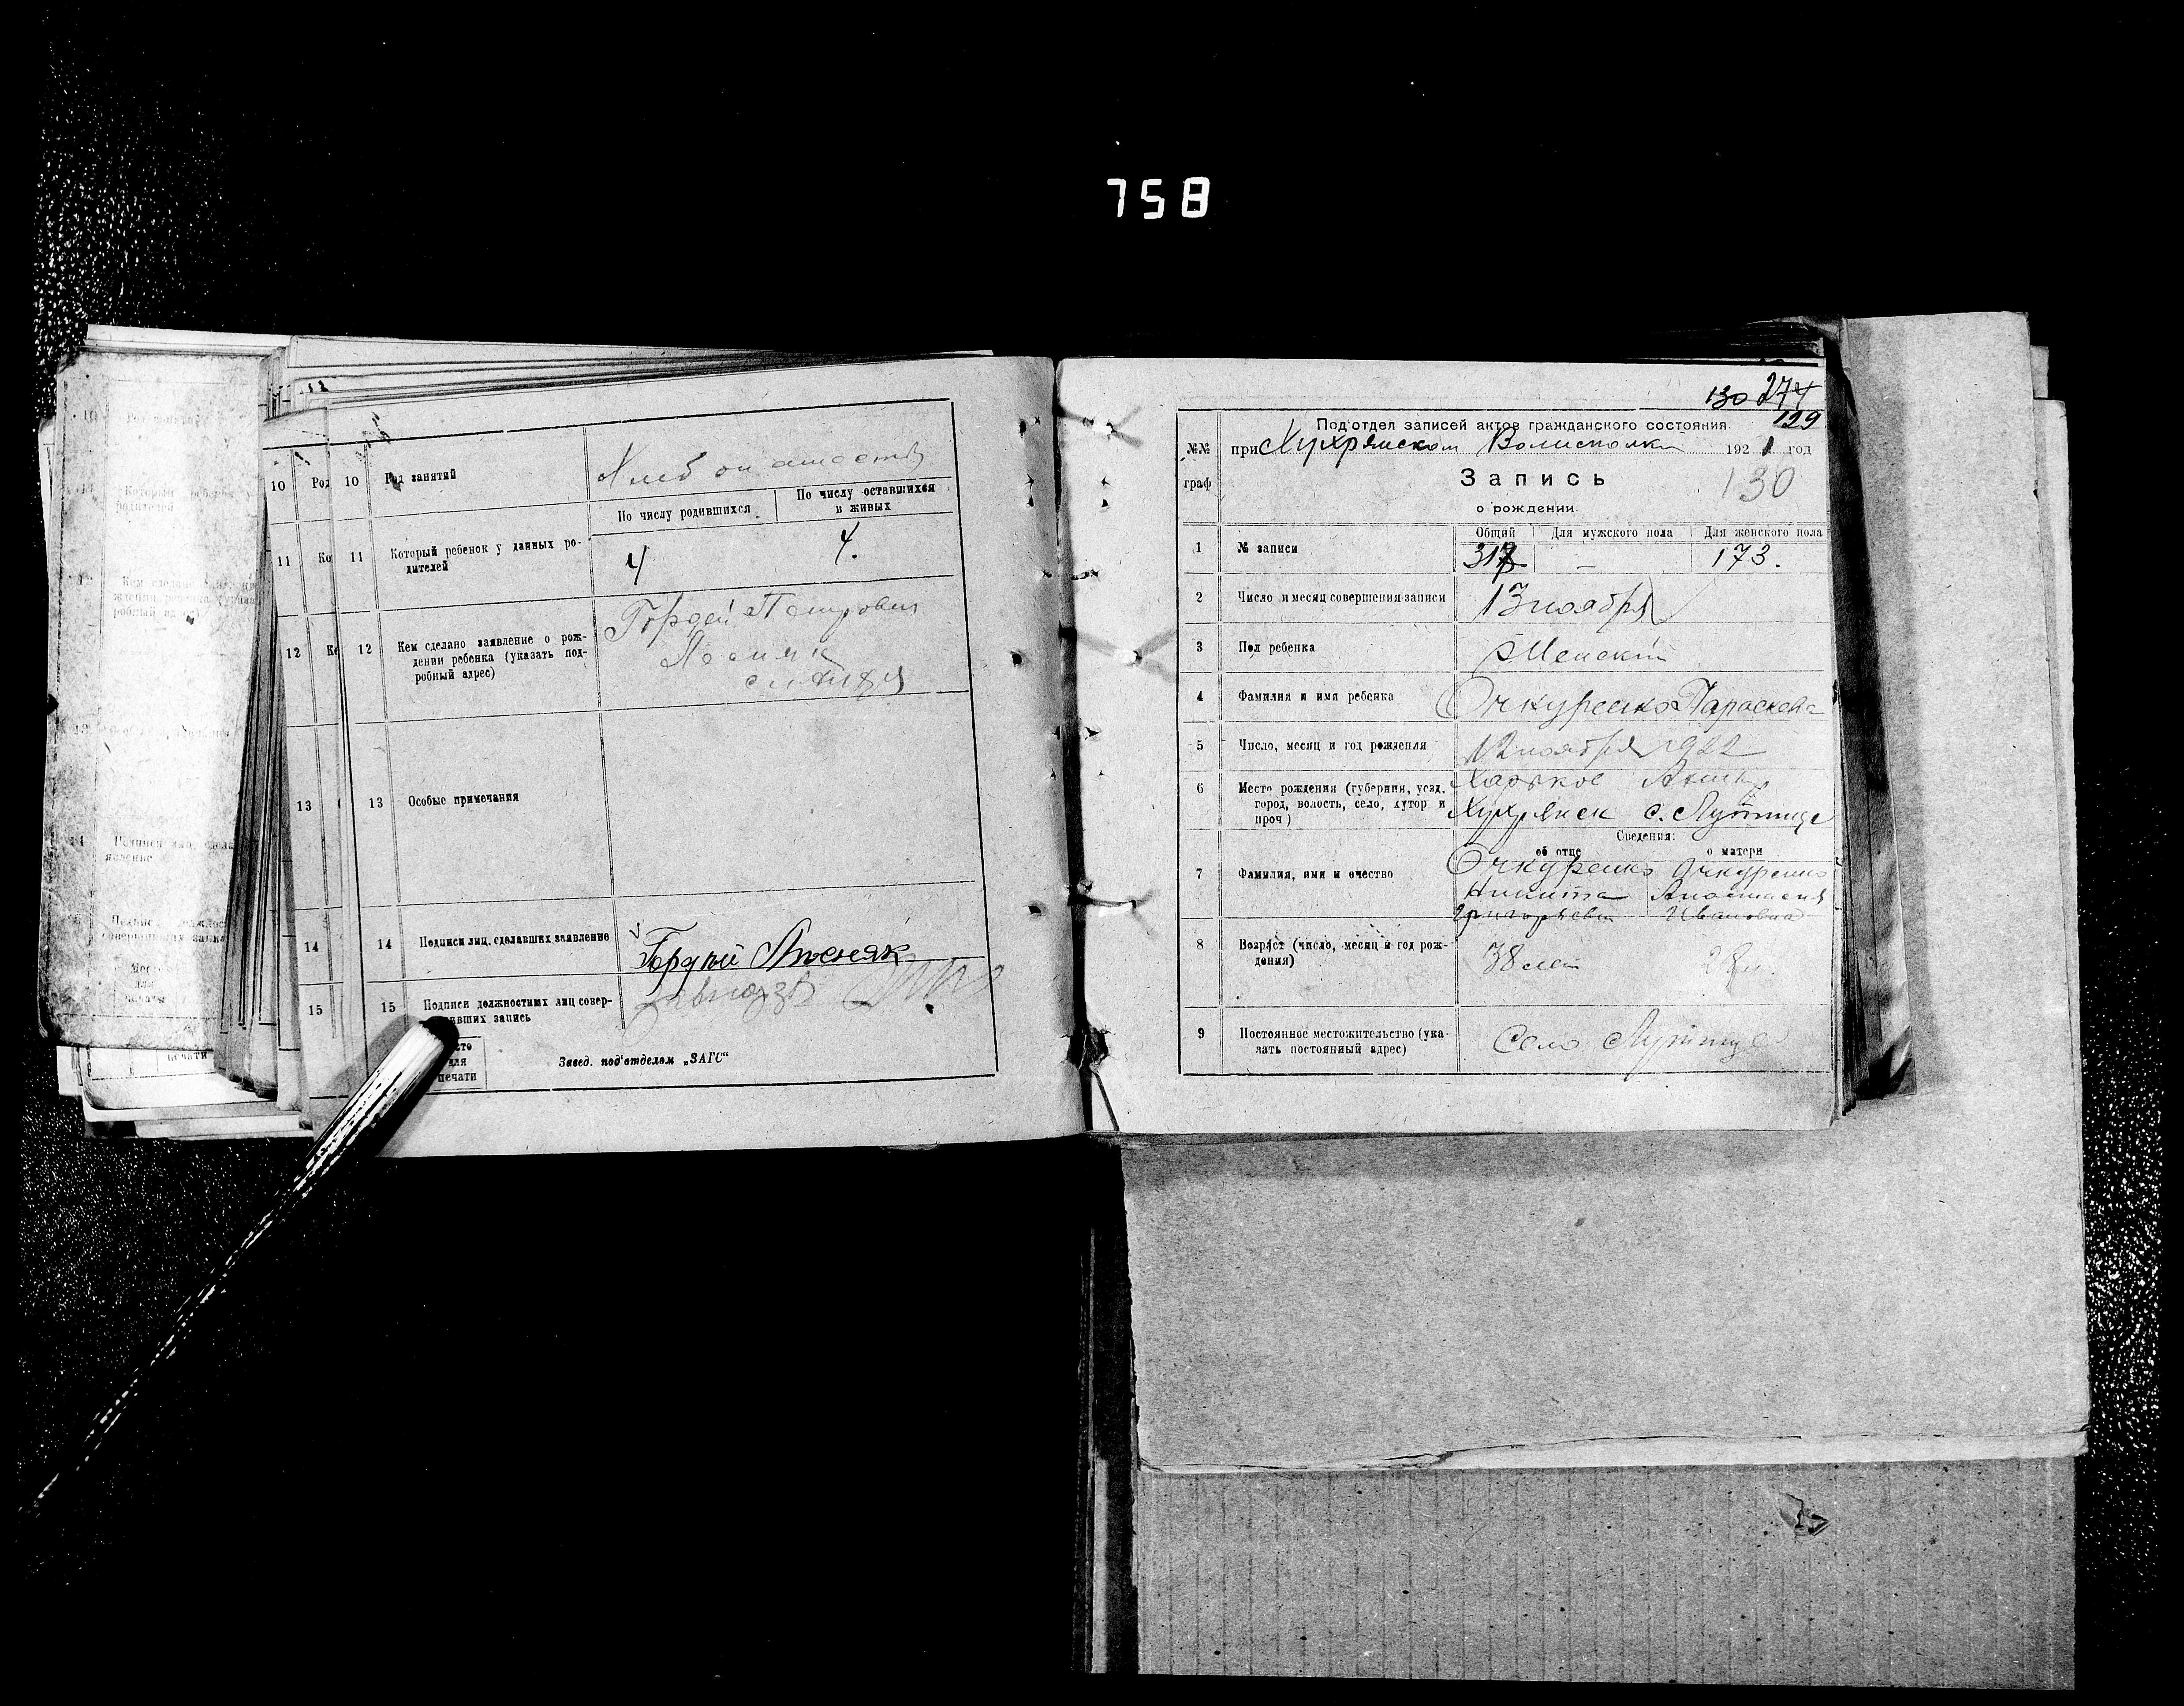 758
10
Род занятий
Хлебопашество
По числу родившихся
По числу оставшихся
в живых
11
Который ребенок у данных ро-
дителей
4
4.
12
Кем сделано заявление о рож-
дении ребенка (указать под-
робный адрес)
Гордей Петрович
13
Особые примечания
14
Подписи лиц, сделавших заявление
Гордей
15
Подписи должностных лиц совер-
шивших запись
место
для
печати
Завед. под'отделом „ЗАГС"
130 274
129
Под'отдел записей актов гражданского состояния
№№
граф
при Хухрянском Волисполк 1921 год
Запись
130
о рождении
Общий
Для мужского пола
Для женского пола
1
№ записи
317
—
173.
2
Число и месяц совершения записи
13 ноября
3
Пол ребенка
Женский
4
Фамилия и имя ребенка
Очкуренко Параскева
5
Число, месяц и год рождения
12 ноября 1922
6
Место рождения (губерния, уезд,
город, волость, село, хутор и
проч)
Харьков
Хухрянск с.
Сведения:
об отце
о матери
7
Фамилия, имя и очество
Очкуренко
Никита
Григорьевич
Очкуренко
Анастасия
Ивановна
8
Возраст (число, месяц и год рож-
дения)
38 лет
28 л.
9
Постоянное местожительство (ука-
зать постоянный адрес)
Село